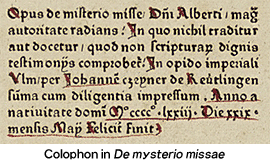 Opus de misterio misse Dñi Alberti mag̃
autoritate radians: In quo nichil traditur
aut docetur, quod non scripturaꝝ dignis
testimonijs comprobet. In opido imperiali
Ulm, per Iohannem czeyner de Reütlingen
sũma cum diligentia impressum. Anno a
natiuitate domini M° cccc° .lxxiii. Die xxix
mensis Maÿ Felicit̃ finit
Colophon in De mysterio missae